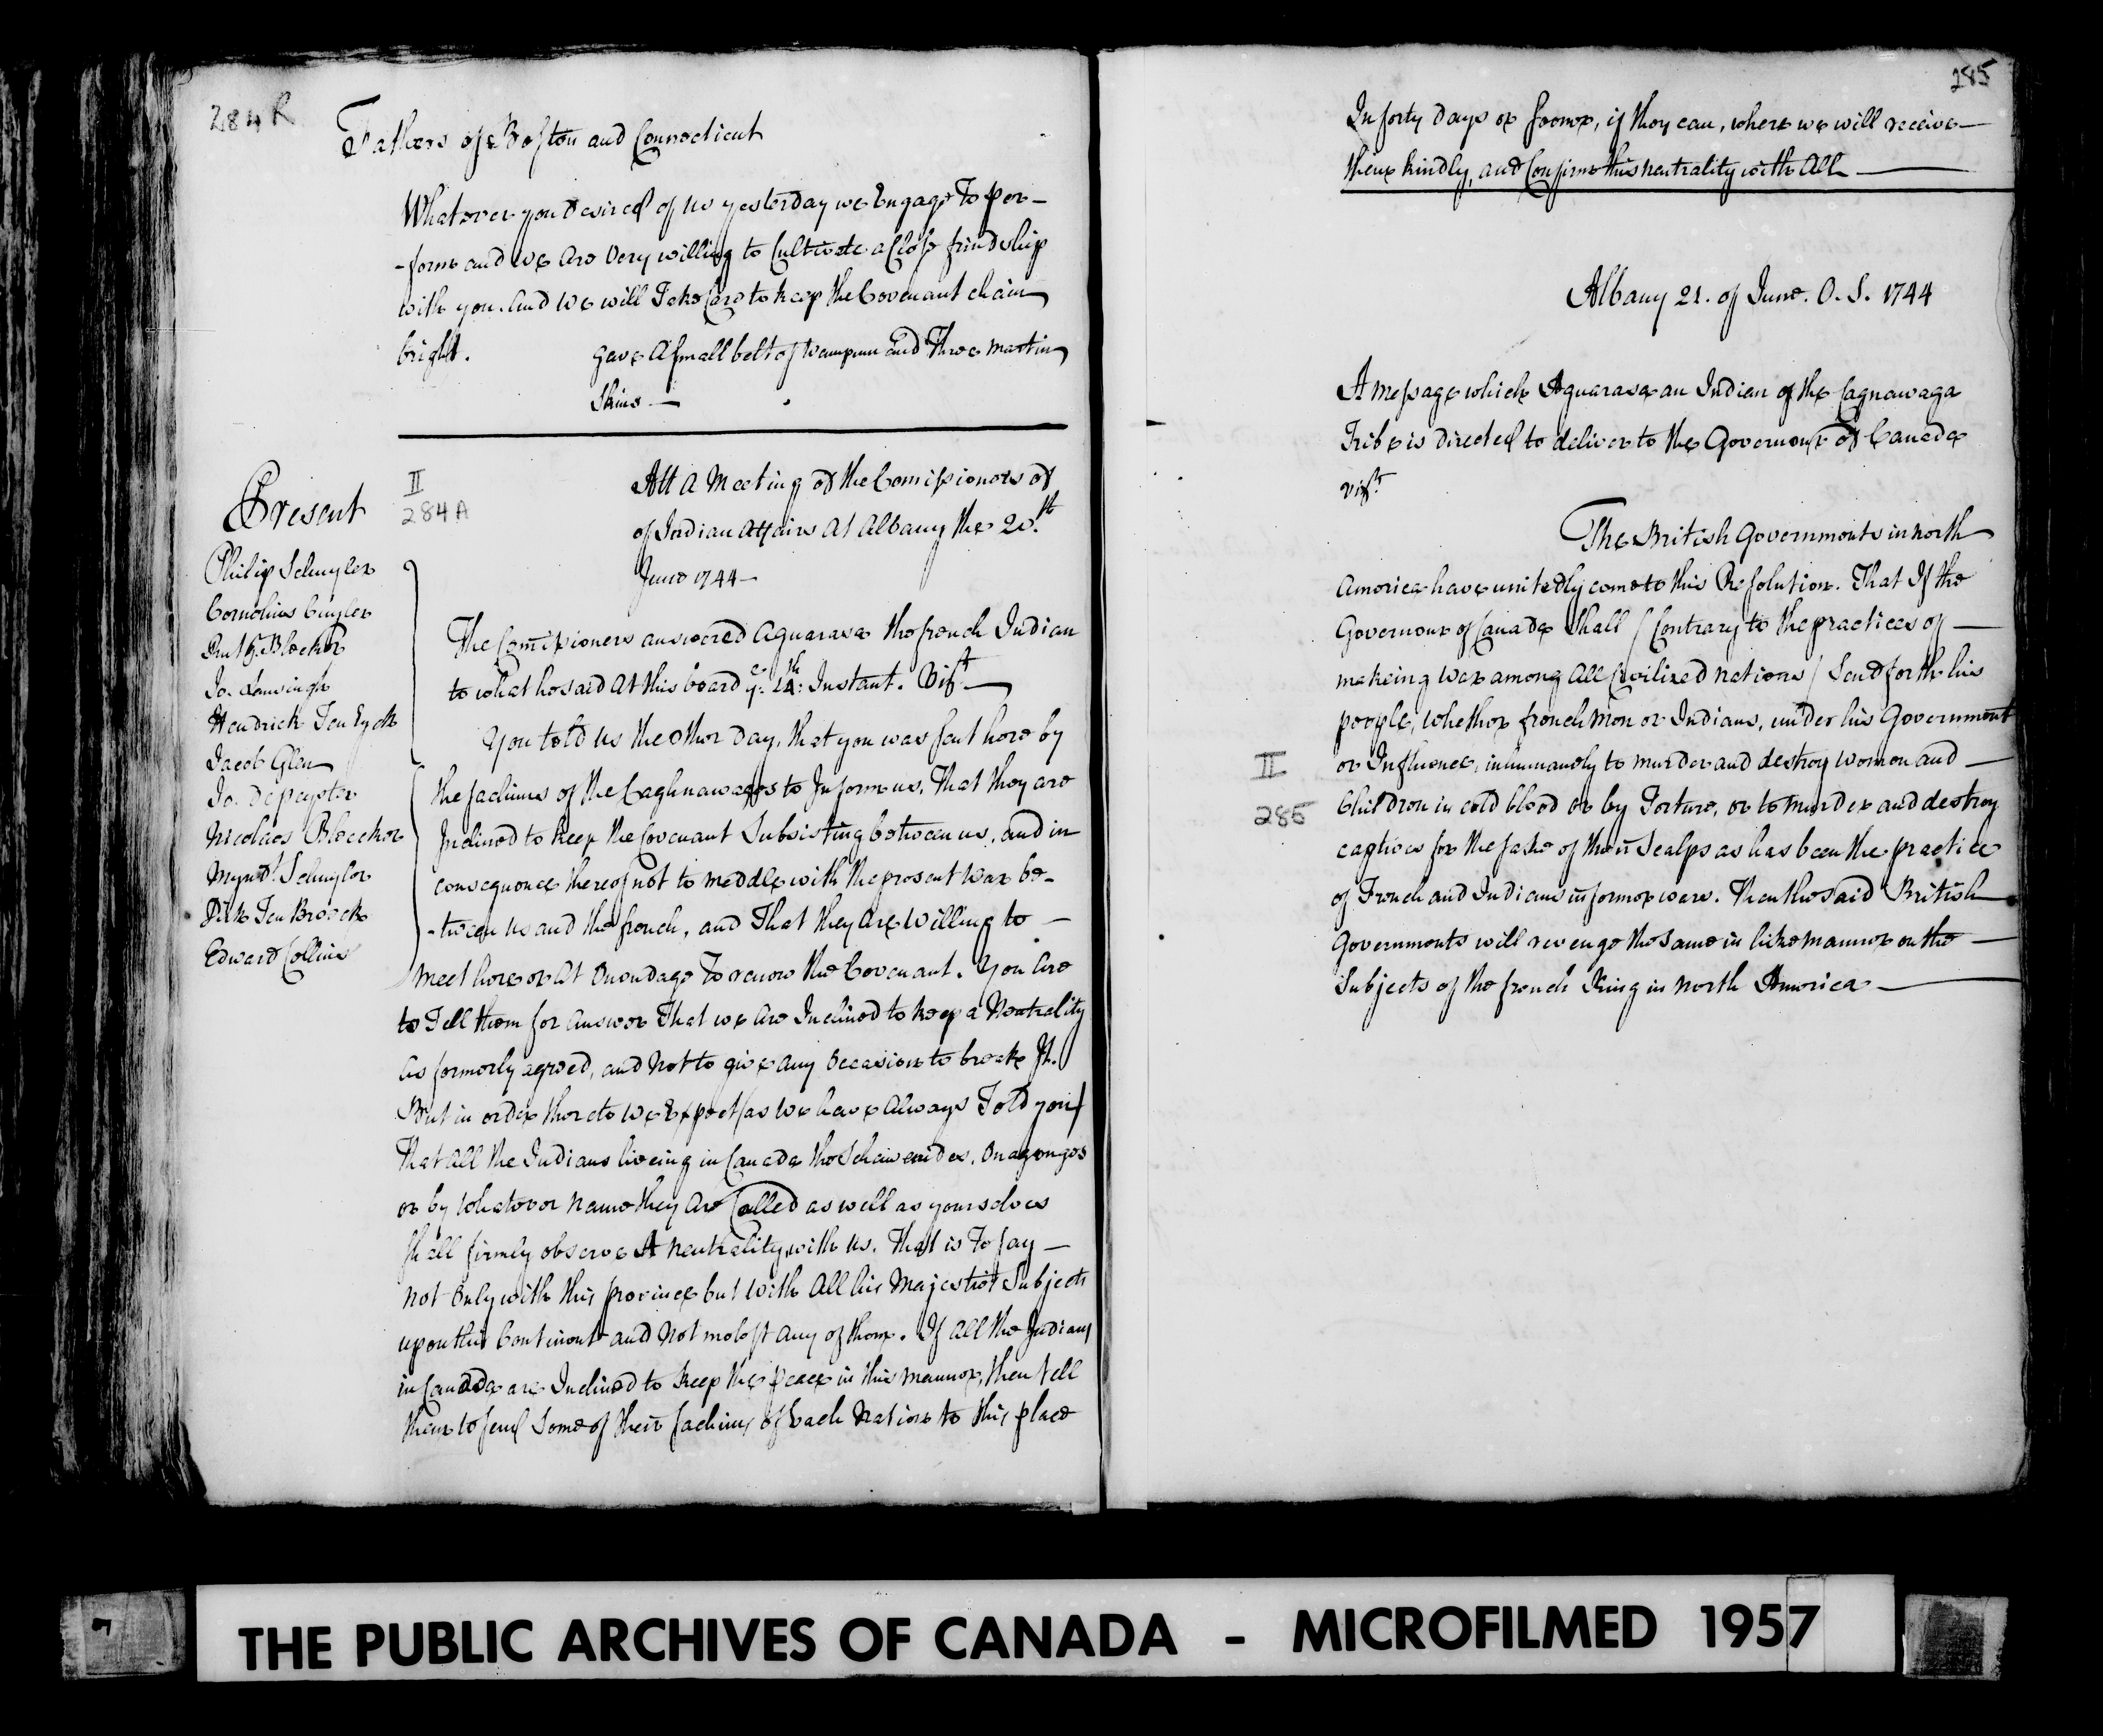 284 R
Fathers of Boston and Connecticut
Whatever you Desired of us yesterday we Engage To per-
-form and we are Very willing to Cultivate a Close frindship
with you. And we will Take Care to keep the Covenant chain
bright. gave A small belt of Wampum and Three martin
Skins —
II
284A
Att A Meeting of the Comissioners of
of Indian Affairs At Albany the 20th
June 1744 —
Present
Philip Schuyler
Cornelius Cuyler
Rut G. Bleeker
Jo. Lansingh
Hendrick Ten Eyck
Jacob Glen
Jo. Depeyster
Nicolaes Bleecker
Mynd.t Schuyler
Dirk Ten Broeck
Edward Collins
The Comissioners answered Aguarasa the french Indian
to what he said At this board ye. 14th: Instant. Vizt —
You told us the other day, that you was sent here by
the sachims of the Caghnawages to Inform us, That they are
Inclined to keep the Covenant Subsisting between us, and in
consequence thereof not to meddle with the present War be-
-tween us and the french, and That they are Willing to —
meet here or At Onondage To renew the Covenant. You Are
to Tell them for answer That we are Inclined to keep a Neutrality
as formerly agreed, and Not to give any Occasion to breake It.
But in order thereto We Expect (as We have Always Told you)
That All the Indians liveing in Canada the Schawenides, Onagonges
or by Whatever name they Are Called as well as yourselves
shall firmly observe A neutrality with us. That is To say —
Not Only with this province but With All his Majesties Subjects
upon this Continent and Not molest Any of them. If All the Indians
in Canada are Inclined to keep the peace in this manner, then tell
them to send Some of their sachims of Each Nation to this place
285
In forty days or sooner, if they can, where we will receive —
them kindly, and Confirm this neutrality with All —
Albany 21. of June. O. S. 1744
A message which Aguarasa an Indian of the Cagnawaga
Tribe is Directed to deliver to the Governour of Canada
vizt
The British Governments in north
America have unitedly come to this Resolution. That If the
Governour of Canada shall / Contrary to the practices of —
makeing War among All Civilized nations / Send forth his
people, Whether french men or Indians, under his Government
or Influence, inhumanely to murder and destroy Women and —
II
285
Children in cold blood or by Torture, or to murder and destroy
captives for the sake of their Scalps as has been the practice
of French and Indians in former wars. Then the said British
Governments will revenge the Same in like manner on the —
Subjects of the french King in North America —
THE PUBLIC ARCHIVES OF CANADA - MICROFILMED 1957